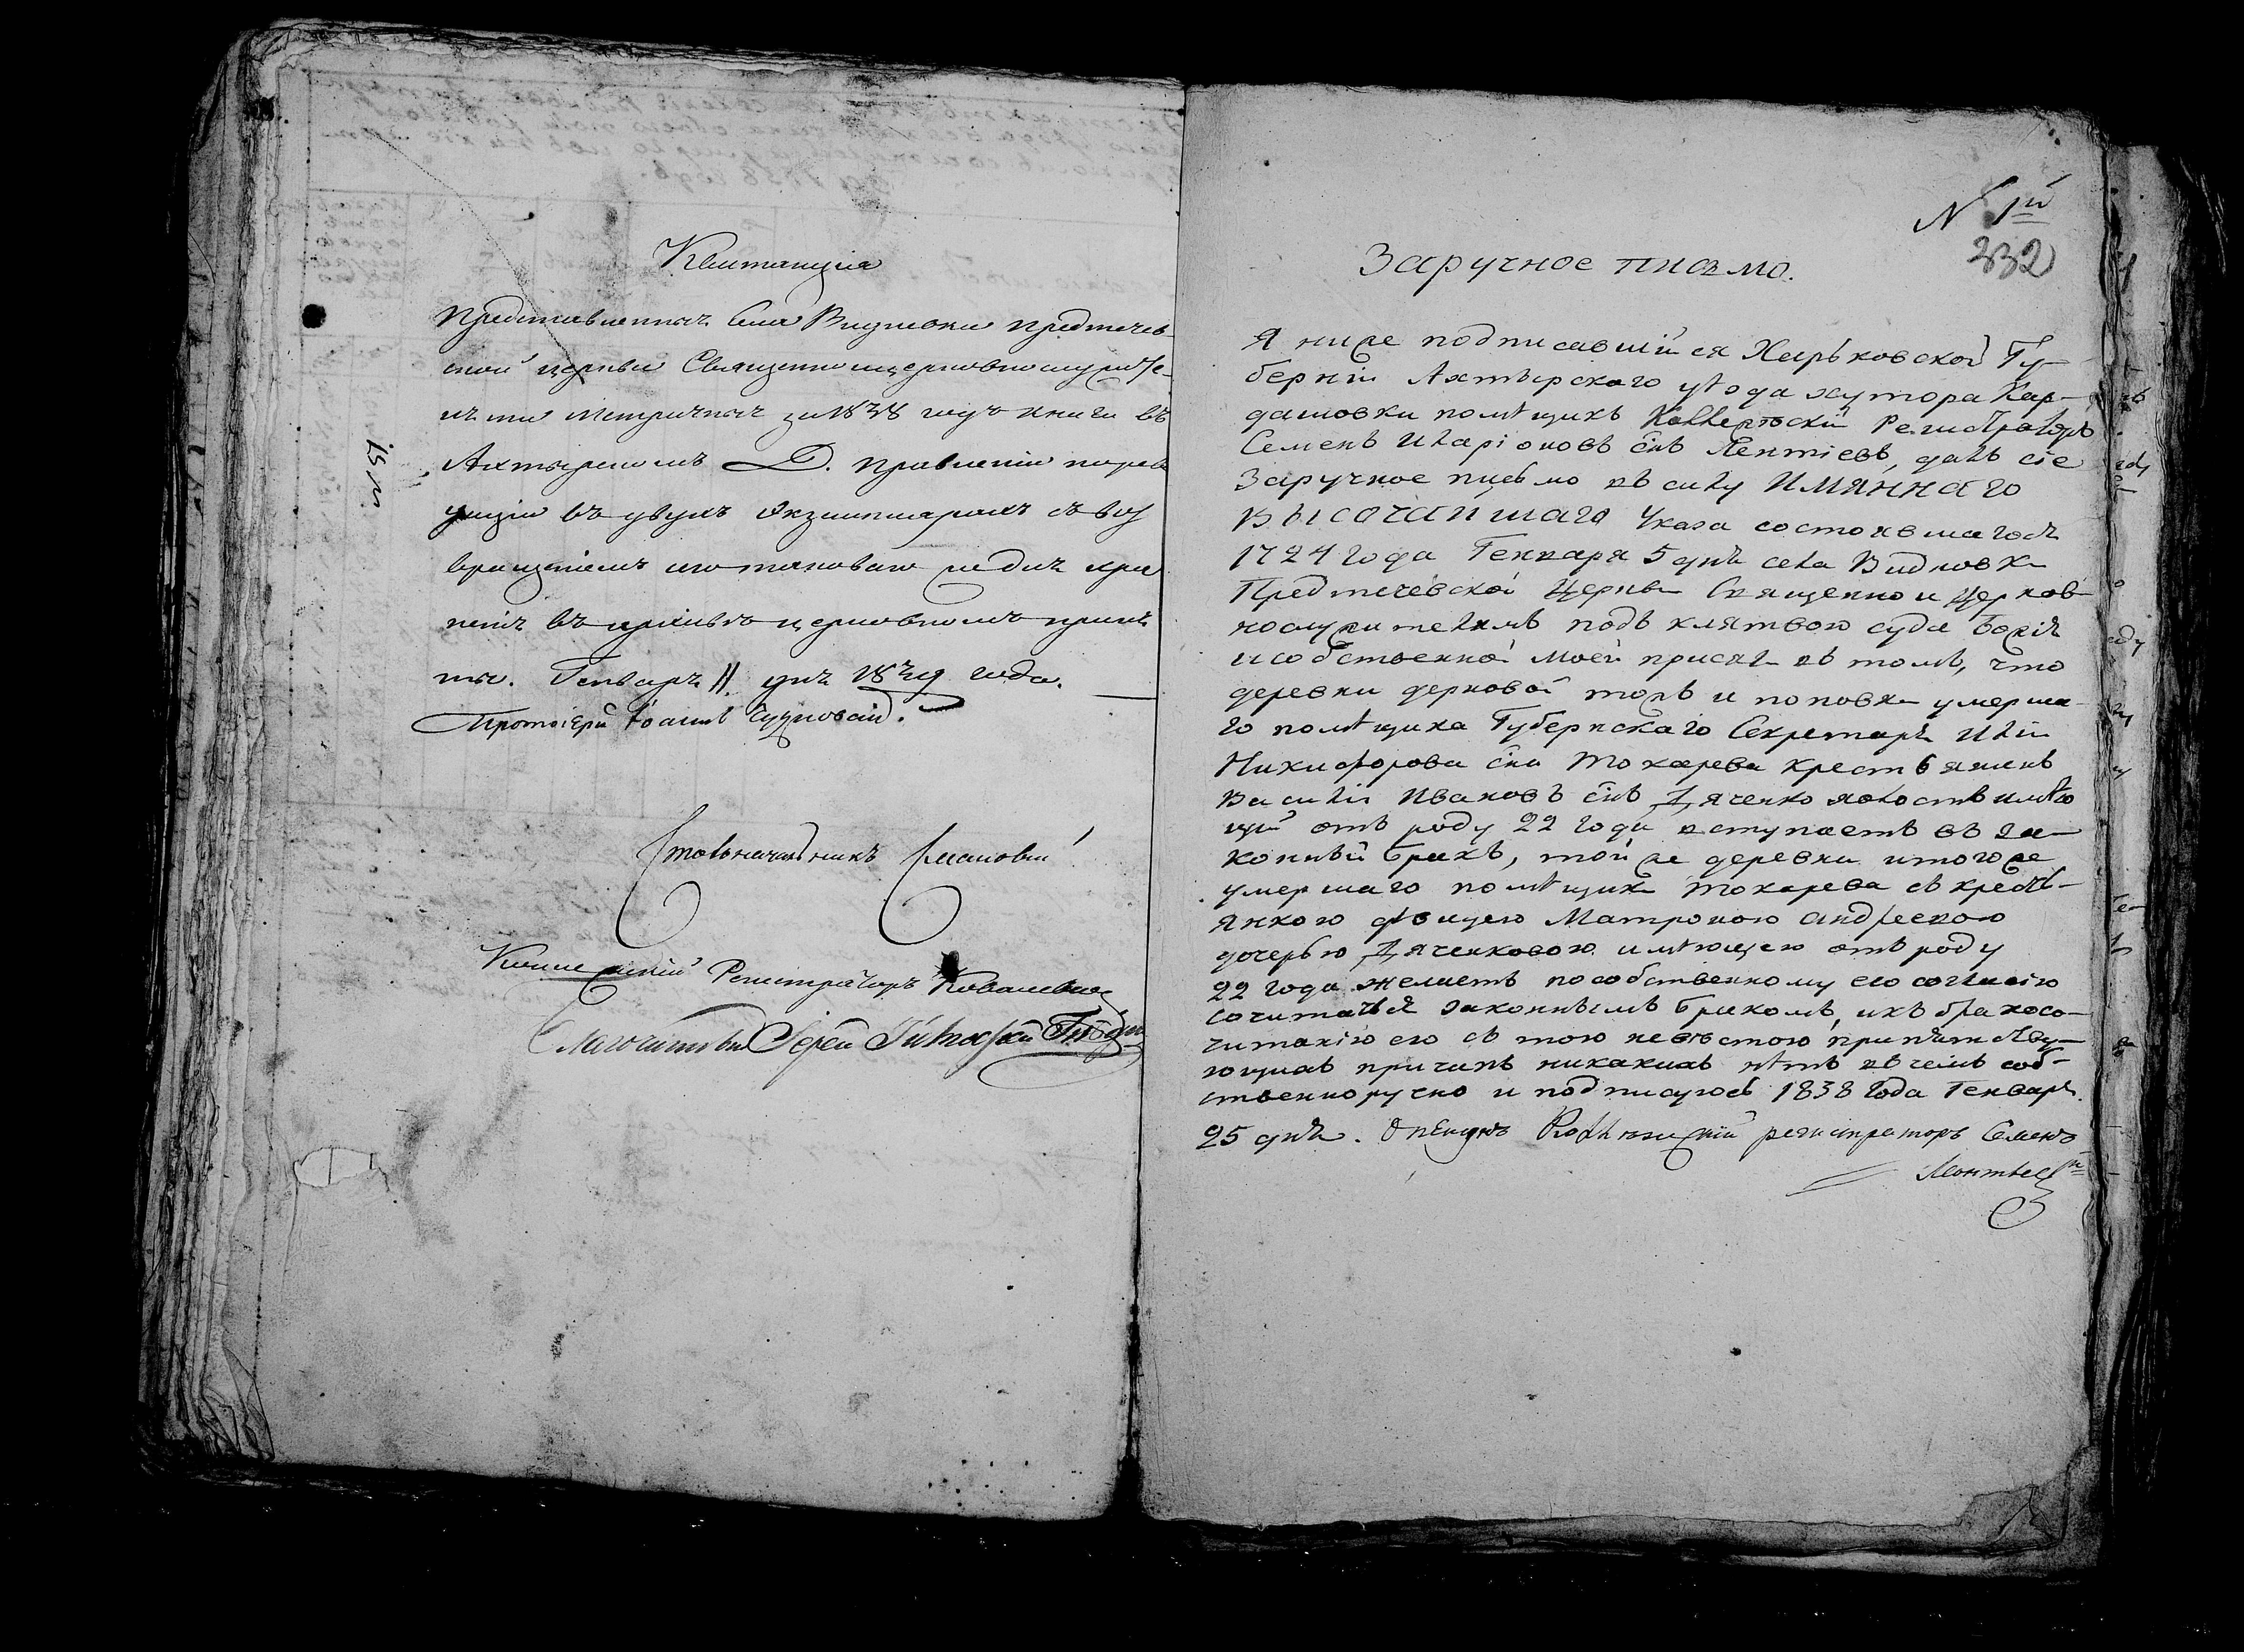 Квитанция
Представленныя села Видновки Предтечев-
ской церкви Священноицерковнослужите-
лями Метричныя за 1838 годъ книги въ
Ахтырскомъ Д. Правленіи по реви
зіи въ двухъ экземплярахъ съ воз
вращеніемъ изъ таковаго для хра
ненія въ архивѣ церковномъ приня
ты. Генваря 11 дня 1839 года.
Протоіерей Іоаннъ
Столоначальникъ
Регистраторъ Ковалевъ
Благочинный Іерей
N 1й
232
Заручное письмо.
Я ниже подписавшійся Харьковской Гу-
берніи Ахтырскаго уѣзда хутора Кар-
дашовки помѣщикъ Коллежскій Регистраторъ
Семенъ Иларіоновъ снъ Лентіевъ, далъ сіе
Заручное письмо въ силу ИМЯННАГО
ВЫСОЧАЙШАГО Указа состоявшагося
1724 года Генваря 5 дня села Видновки
Предтечевской Церкви Священно и Церков-
нослужителямъ подъ клятвою суда Божія
и собственной моей присяги въ томъ, что
деревни дерновой тожъ и поповки умерша-
го помѣщика Губернскаго Секретаря Иліи
Никифорова сна Токарева крестьянинъ
Василій Ивановъ снъ Дяченко холостъ имѣю
щій отъ роду 22 года вступаетъ въ за-
конный бракъ, той же деревни и того же
умершаго помѣщика Токарева съ кресть-
янкою дѣвицею Матроною Андреевою
дочерью Дяченковою имѣющею отъ роду
22 года желаетъ по собственному его согласію
сочитаться законнымъ бракомъ, и къ бракосо-
читанію его съ тою невѣстою припятству-
ющихъ причинъ никакихъ нѣтъ въ чемъ соб-
ственноручно и подписуюсь 1838 года Генваря
25 дня. Опекунъ Коллежскій регистраторъ Семенъ
Леонтьевъ